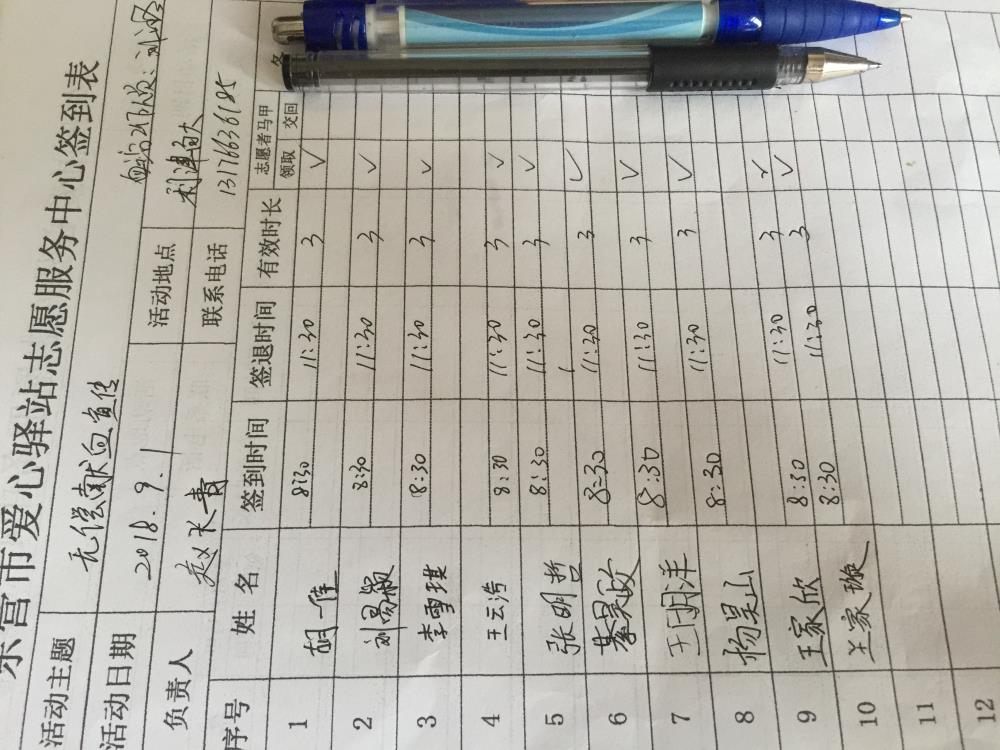 东营市爱心驿站志愿服务中心签到表
活动主题 无偿献血宣传
活动日期 2018.9.1 活动地点 利津南大
负责人 赵长青 联系电话 13176636185
序号 姓名 签到时间 签退时间 有效时长 志愿者马甲 领取 交回
1 胡一佳 8:30 11:30 3 ✓
2 刘昌颖 8:30 11:30 3 ✓
3 李雪琪 8:30 11:30 3 ✓
4 王云涛 8:30 11:30 3 ✓
5 张明哲 8:30 11:30 3 ✓
6 綦昊政 8:30 11:30 3 ✓
7 王明洋 8:30 11:30 3 ✓
8 杨昊山 8:30 11:30 3 ✓
9 王家欣 8:30 11:30 3 ✓
10 王家璇 8:30 11:30 3 ✓
11
12